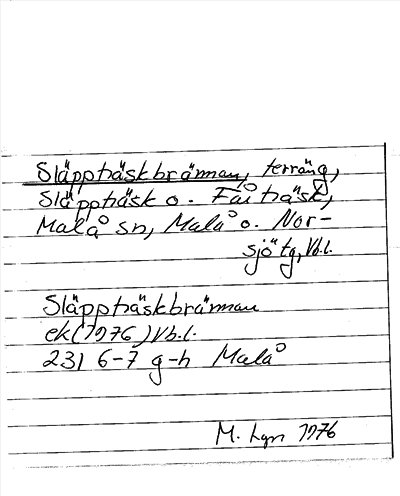 Släppträskbrännan, terräng,
Släppträsk o. Fårträsk,
Malå sn, Malå o. Nor-
sjö tg, Vb.l.
Släppträskbrännan
ek (1976) Vb.l.
231 6-7 g-h Malå
M. Lgn 1976